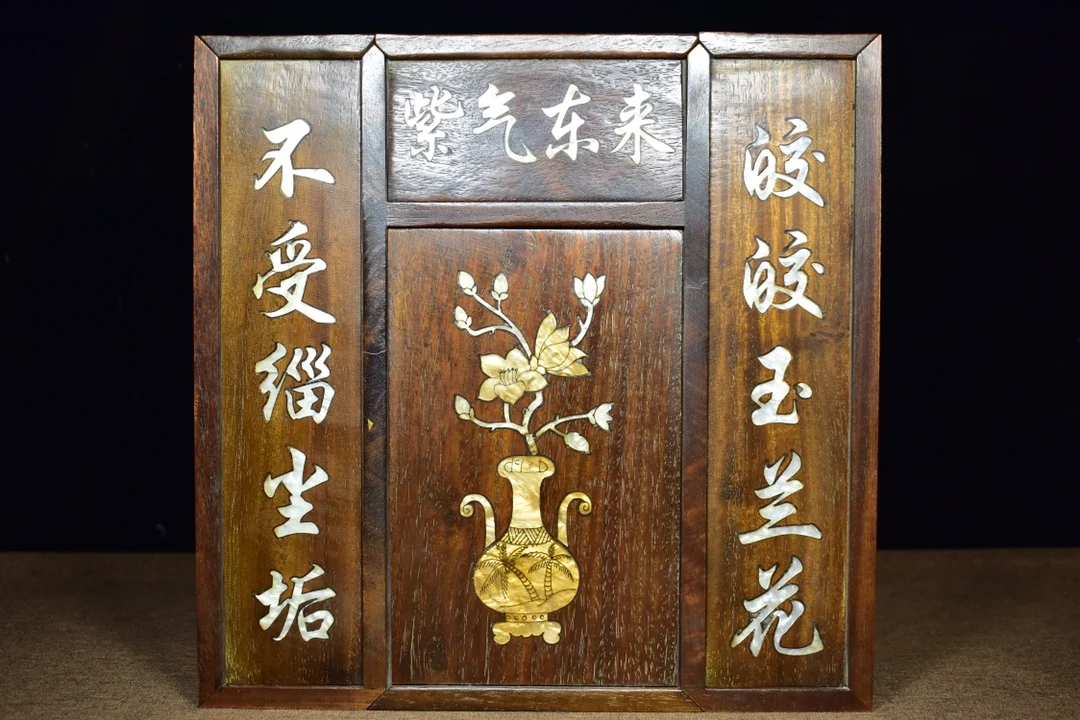 紫气东来
皎皎玉兰花
不受缁尘垢